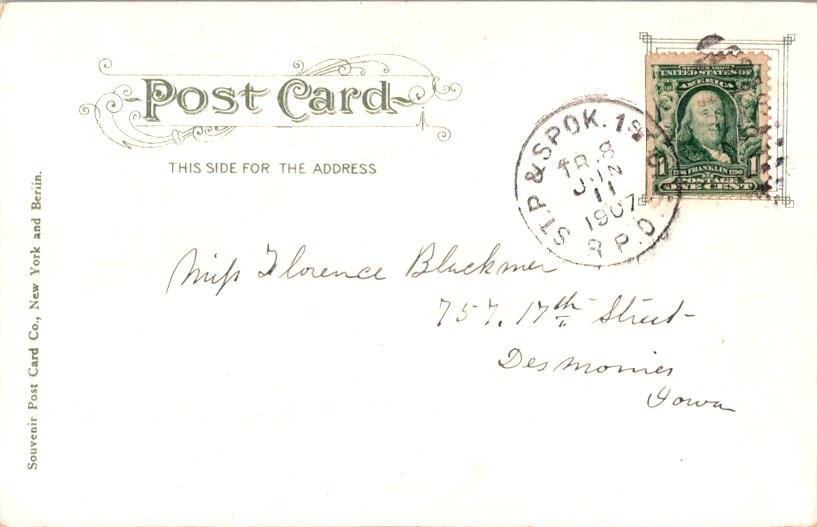 Post Card
THIS SIDE FOR THE ADDRESS
Souvenir Post Card Co., New York and Berlin.
ST.P & SPOK. 1st
TR. 8
JUN
11
1907
R.P.O.
UNITED STATES OF
AMERICA
1 FRANKLIN 1
POSTAGE
ONE CENT
Miss Florence Blackmer
757. 17th Street
Desmoines
Iowa